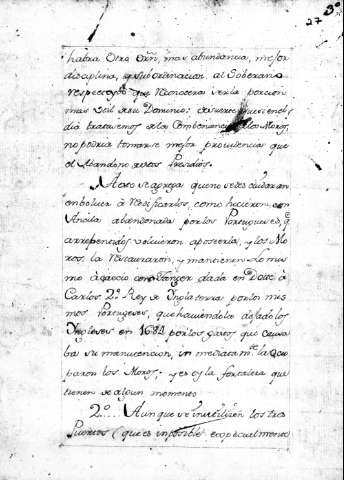 3º
27
habra otro orñ, mas abundancia, mejor
disciplina, y subordinacion, al Soberano
respecto que reconocera ser la porcion
mas util a su Dominio: si en el
dia tratasemos de la combeniencia de los Moros,
no podria tomarse mejor providencia que
el Abandono de estos Presidios.
A esto se agrega que no se descuidaran
en bolver à redificarlos, como hicieron con
Arcila abandonada por los Portugueses, q.e
arrepentidos volvieron a poseerla, y los Mo
ros, la restauraron, y mantienen. Lo mis
mo à sucedio con Tanger dada en Dote à
Carlos 2º. Rey de Inglaterra por los mis
mos Portugueses, que haviendola dejado los
Ingleses en 1684 por los gastos que causa
ba su manutencion, inmediatam.te la ocu
paron los Moros; y es oy la fortaleza que
tienen de algun momento.
2º.... Aunque se inutilizen los tres
Puertos (que es imposible especialmente